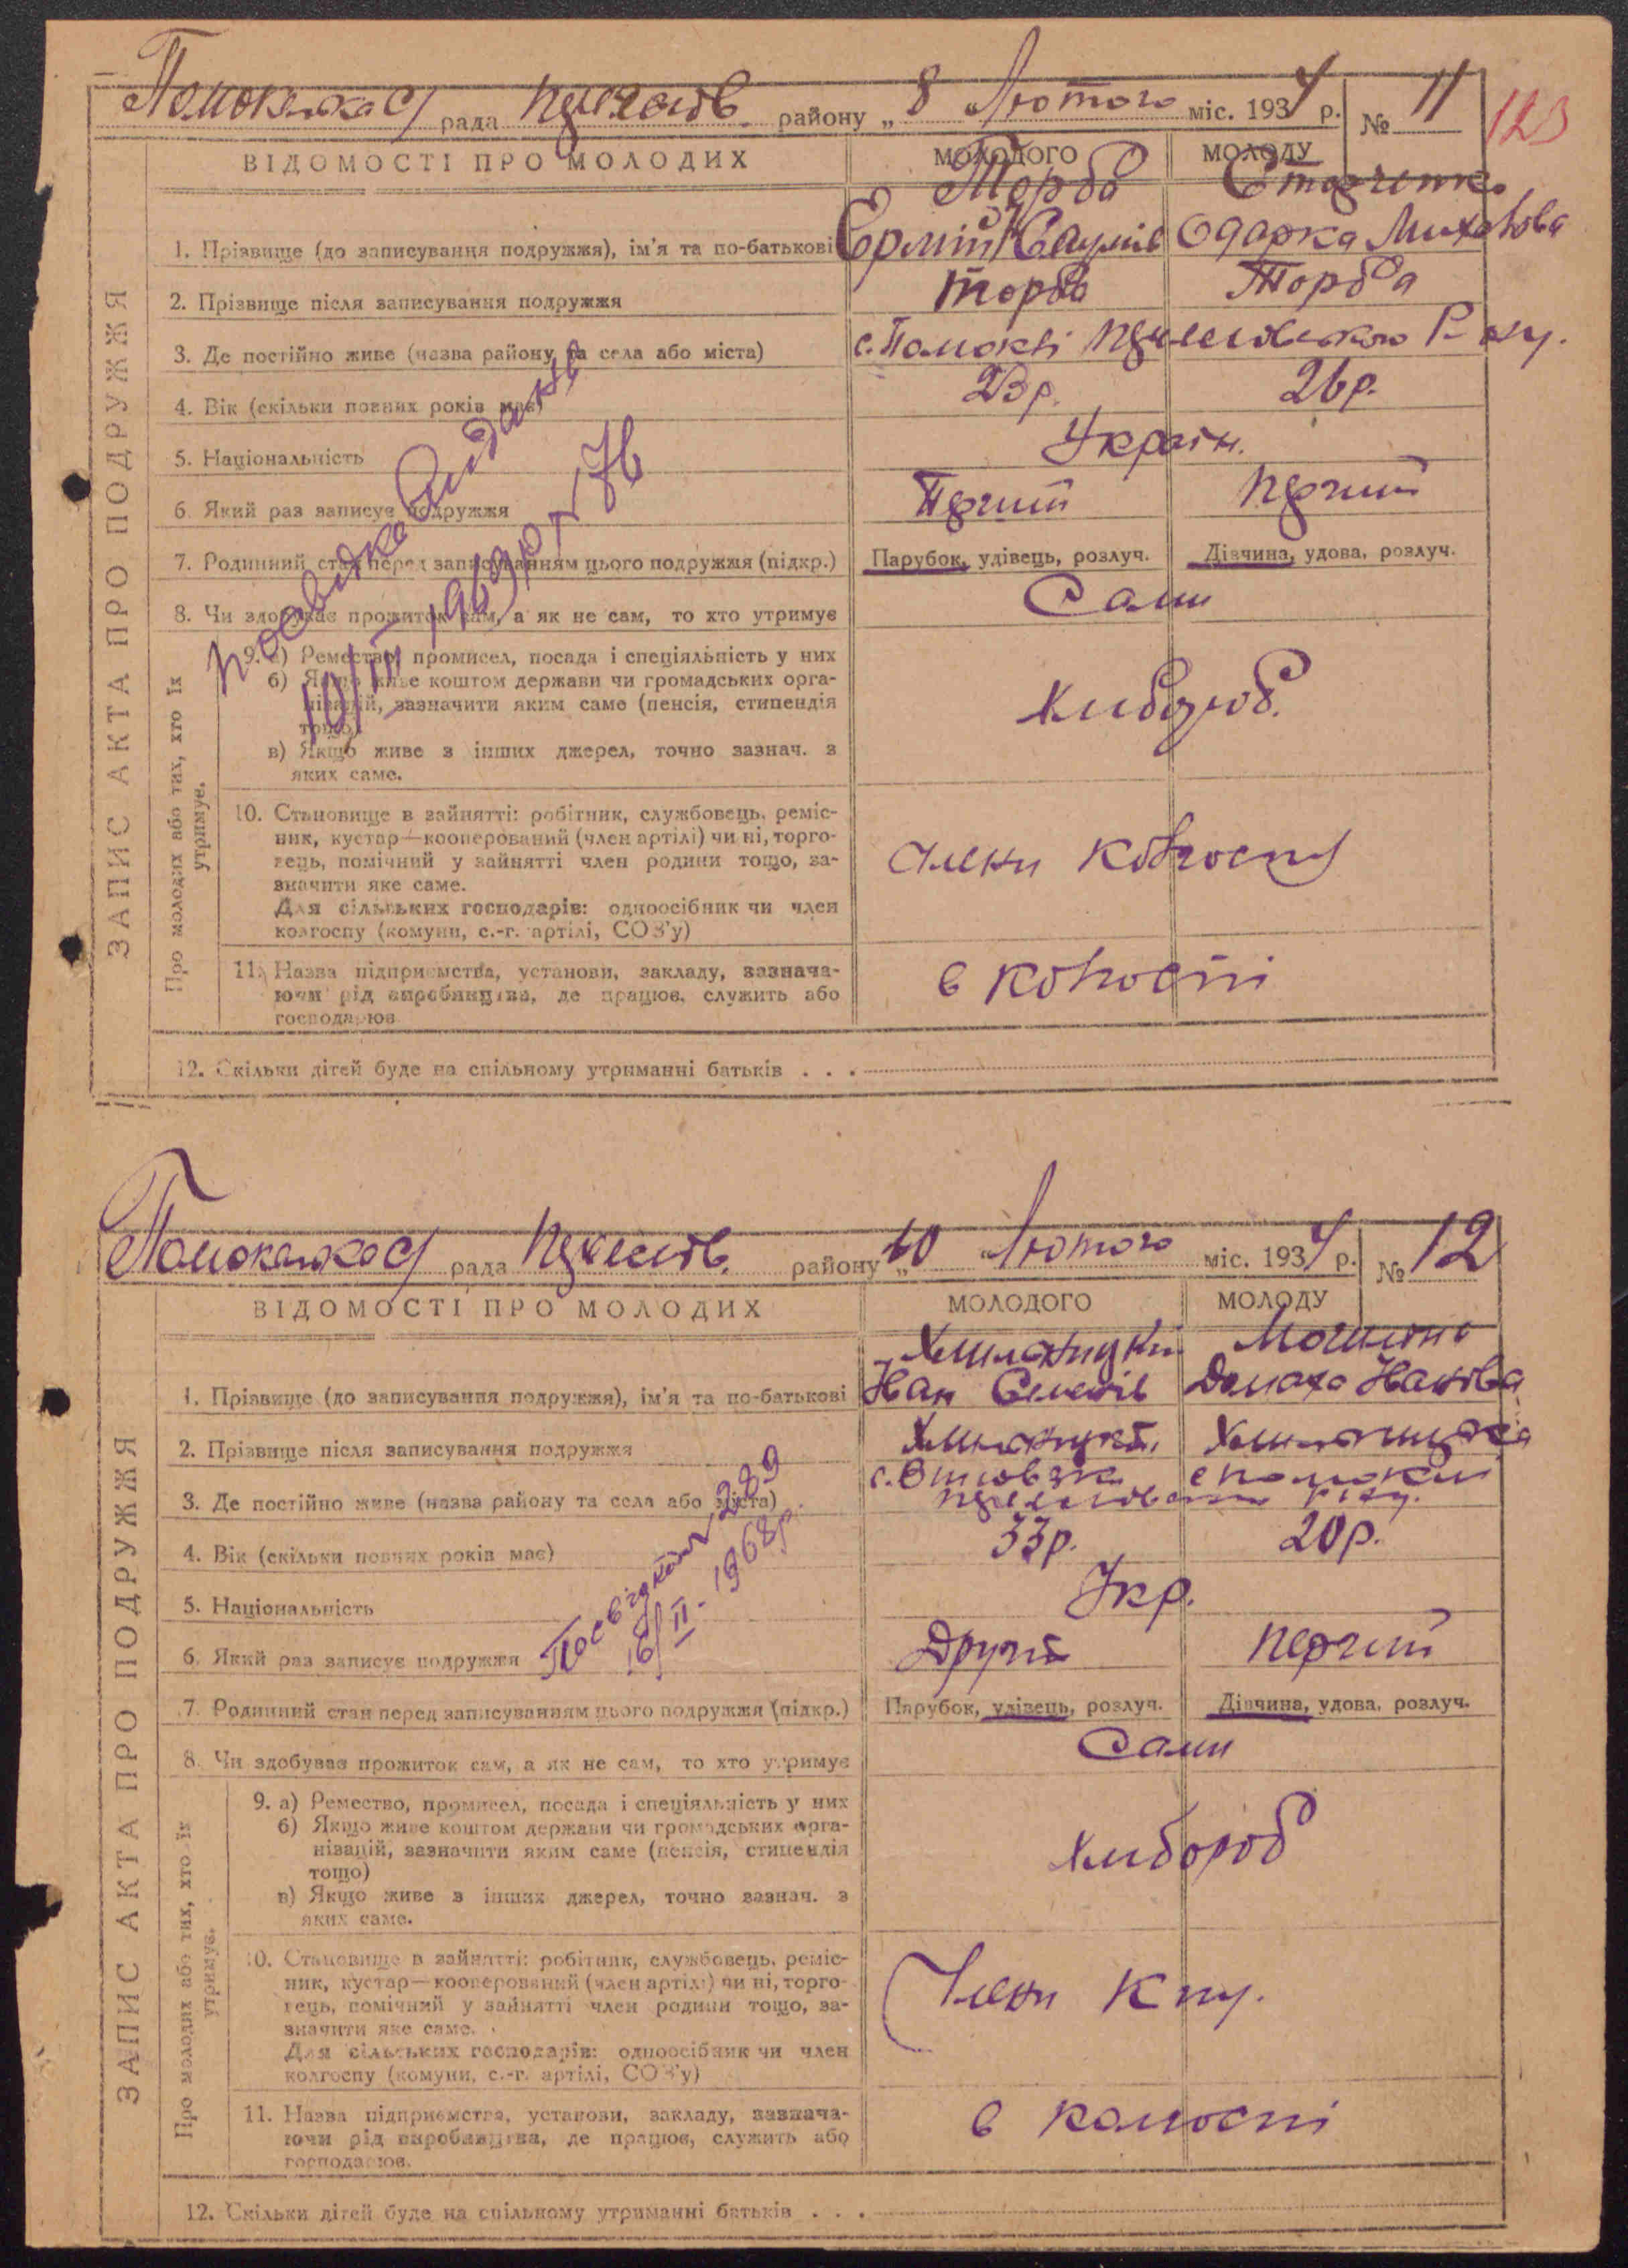 рада району „ 8 Лютого міс. 1934 р. № 11
123
ВІДОМОСТІ ПРО МОЛОДИХ МОЛОДОГО МОЛОДУ
Торба
1. Прізвище (до записування подружжя), ім'я та по-батькові Одарка
2. Прізвище після записування подружжя Торба Торба
3. Де постійно живе (назва району та села або міста) с. Помоклі
4. Вік (скільки повних років має) 23 р. 26 р.
5. Національність Україн.
6. Який раз записує подружжя Перший Перший
7. Родинний стан перед записуванням цього подружжя (підкр.) Парубок, удівець, розлуч. Дівчина, удова, розлуч.
8. Чи здобуває прожиток сам, а як не сам, то хто утримує Сами
9. а) Ремество, промисел, посада і спеціяльність у них
б) Якщо живе коштом держави чи громадських орга-
нізацій, зазначити яким саме (пенсія, стипендія
тощо)
в) Якщо живе з інших джерел, точно зазнач. з
яких саме.
Хлибороб.
10. Становище в зайнятті: робітник, службовець, реміс-
ник, кустар—кооперований (член артілі) чи ні, торго-
вець, помічний у зайнятті член родини тощо, за-
значити яке саме.
Для сільських господарів: одноосібник чи член
колгоспу (комуни, с.-г. артілі, СОЗ'у)
Члени колгоспу
11. Назва підприємства, установи, закладу, зазнача-
ючи рід виробництва, де працює, служить або
господарює
в колгоспі
12. Скільки дітей буде на спільному утриманні батьків . . .
ЗАПИС АКТА ПРО ПОДРУЖЖЯ
Про молодих або тих, хто їх
утримує.
10/III 1969 р. № 76
рада району „ 10 Лютого міс. 1934 р. № 12
ВІДОМОСТІ ПРО МОЛОДИХ МОЛОДОГО МОЛОДУ
1. Прізвище (до записування подружжя), ім'я та по-батькові Іван Домаха Іванова
2. Прізвище після записування подружжя
3. Де постійно живе (назва району та села або міста)
4. Вік (скільки повних років має) 33 р. 20 р.
5. Національність Укр.
6. Який раз записує подружжя Другий Перший
7. Родинний стан перед записуванням цього подружжя (підкр.) Парубок, удівець, розлуч. Дівчина, удова, розлуч.
8. Чи здобуває прожиток сам, а як не сам, то хто утримує Сами
9. а) Ремество, промисел, посада і спеціяльність у них
б) Якщо живе коштом держави чи громадських орга-
нізацій, зазначити яким саме (пенсія, стипендія
тощо)
в) Якщо живе з інших джерел, точно зазнач. з
яких саме.
Хлибороб
10. Становище в зайнятті: робітник, службовець, реміс-
ник, кустар—кооперований (член артілі) чи ні, торго-
вець, помічний у зайнятті член родини тощо, за-
значити яке саме.
Для сільських господарів: одноосібник чи член
колгоспу (комуни, с.-г. артілі, СОЗ'у)
Члени
11. Назва підприємства, установи, закладу, зазнача-
ючи рід виробництва, де працює, служить або
господарює.
в колгоспі
12. Скільки дітей буде на спільному утриманні батьків . . .
ЗАПИС АКТА ПРО ПОДРУЖЖЯ
Про молодих або тих, хто їх
утримує.
289
16/II - 1968 р.